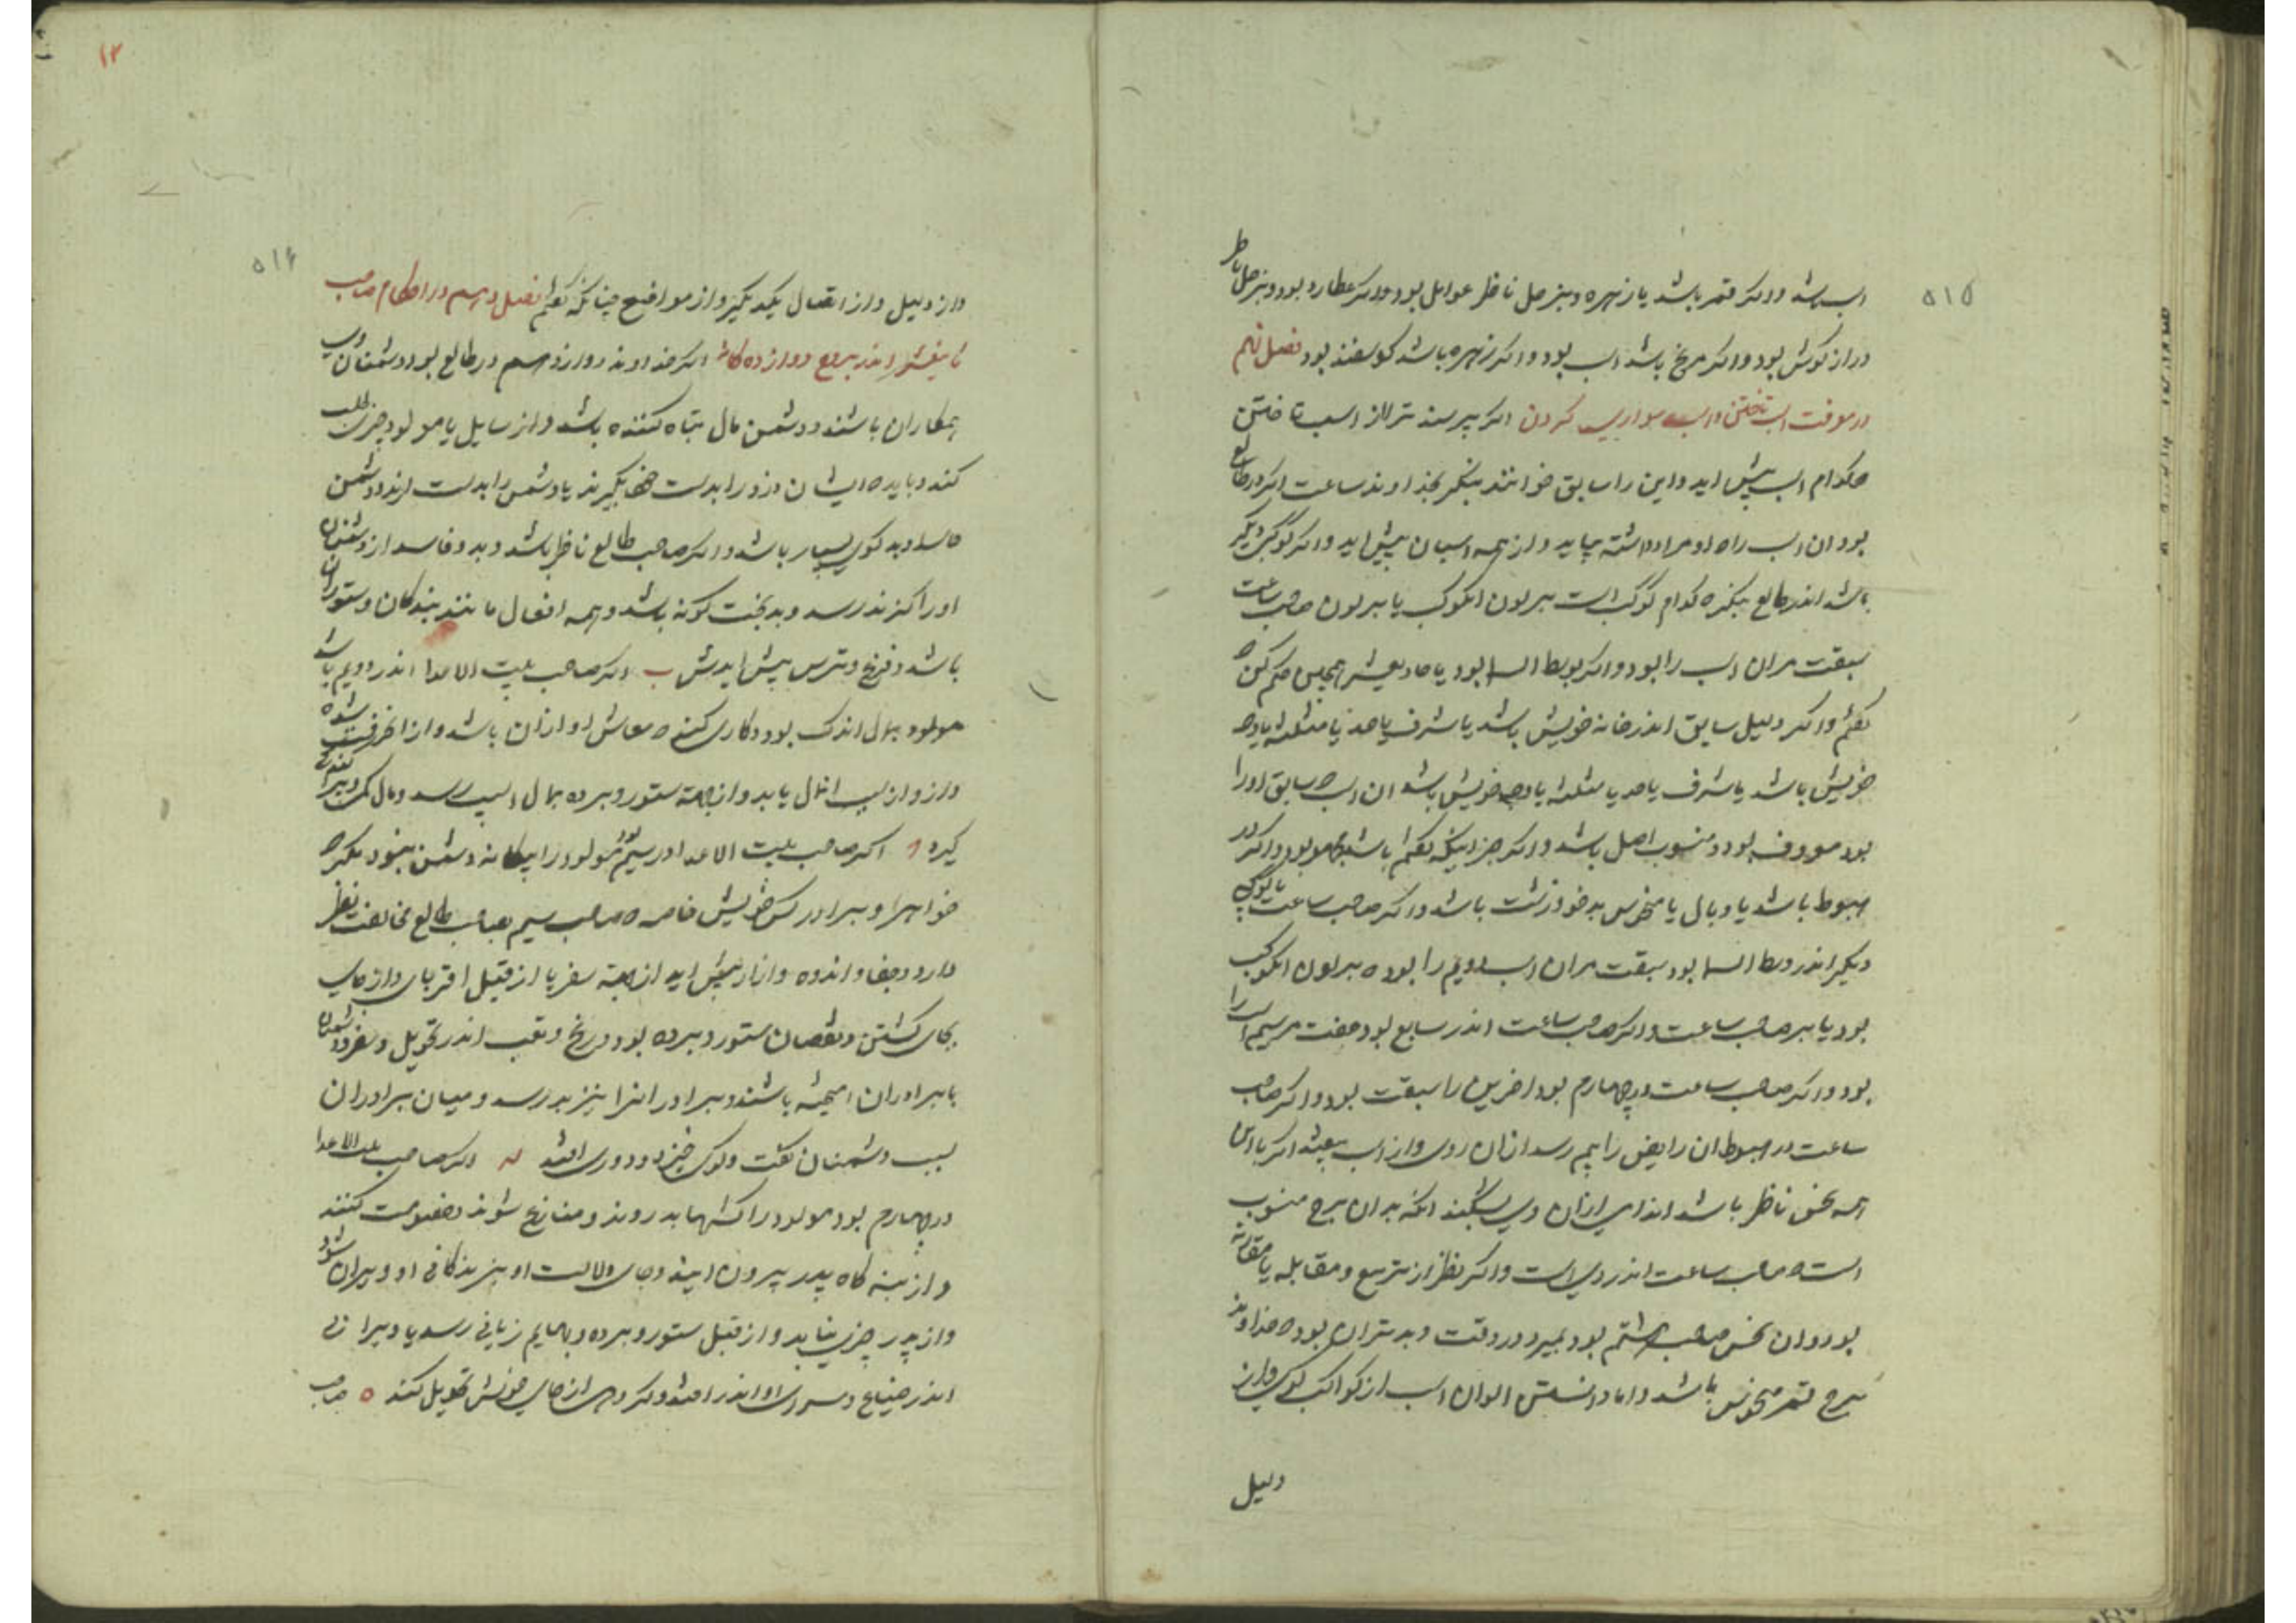 ۵۱۵
اسب باشد و اگر قمر باشد یا زهره و بزحل ناظر عوامل بود و اگر عطارد بود و بزحل ناظر
دراز گوش بود و اگر مریخ باشد اسب بود و اگر زهره باشد گوسفند بود فصل نهم
در معرفت اسب تاختن و اسب سواری کردن اگر پرسند ترا از اسب تاختن
کدام اسب پیش اید و این را سابق خوانند بنگر بخداوند ساعت اگر در طالع
بود ان اسب راه او مراد داشته بیاید و از همه اسبان پیش اید و اگر کوکب دیگر
باشد اندر طالع بنگر که کدام کوکب است بر لون انکوکب یا بر لون صاحب ساعت
سبقت مران اسب را بود و اگر بوسط السما بود یا حادیعشر همچنین حکم کن که
گفتم و اگر دلیل سابق اندر خانه خویش باشد یا شرف یا حد یا مثلثه یا وجه
خویش باشد یا شرف یا حد یا مثلثه یا وجه خویش باشد ان اسب سابق اورا
بود معروف بود و منسوب اصل باشد و اگر جز اینکه گفتم باشد بود و اگر در
هبوط باشد یا وبال یا منحوس بدخو و زشت باشد و اگر صاحب ساعت یا کوکبی
دیگر اندر وسط السما بود سبقت مران اسب دویم را بود که بر لون انکوکب
بود یا بر صاحب ساعت و اگر صاحب ساعت اندر سابع بود مرسیم اسب را
بود و اگر صاحب ساعت در چهارم بود اخرین را سبقت بود و اگر صاحب
ساعت در هبوط ان رایض را بیم رسد ازان روی و از اسب بیفتد اگر با این
همه نحس ناظر باشد اندامی ازان وی بشکند انکه بدان برج منسوب
است که صاحب ساعت اندر وی است و اگر نظر از تربیع و مقابله یا مقارنه
بود و ان نحس صاحب هشتم بود بمیرد در وقت و بدتر ان بود که خداوند
برج قمر منحوس باشد و اما دانستن الوان اسب از کواکب گوی و از
دلیل
۱۲
۵۱۶
و از دلیل و از اتصال یکدیگر و از مواضع چنانکه گفتم فصل دهم در احکام صاحب
ثانیعشر اندر بروج دوازده گانه اگر خداوند دوازدهم در طالع بود دشمنان وی
همکاران باشند و دشمن مال تباه کننده باشد و از سایل یا مولود چیزی طلب
کند و باید که ایشان دزد را بدست بگیرند یا دشمن را بدست ارند و دشمن
حاسد و بدگوی بسیار باشد و اگر صاحب طالع ناظر باشد و بد و فاسد از دشمنان
اورا گزند رسد و بدبخت گونه باشد و همه افعال مانند بندگان و ستوران
باشد و رنج و ترس پیش ایدش ب اگر صاحب بیت الاعدا اندر دویم باشد
مولود بمال اندک بود و کاری کند که معاش او ازان باشد و از
و از و از سبب مال یابد و از جهته ستور و برده بمال اسیب رسد و مال
گیرد اگر صاحب بیت الاعدا در سیم بود مولود را بیگانه دشمن نبود مگر که
خواهر و برادر کس خویش خاصه که صاحب سیم بصاحب طالع مخالفت نظر
دارد و جفا و اندوه و ازار پیش اید از جهته سفر یا از قبل اقربا و از جای
بجای گشتن و نقصان ستور و برده بود و رنج و تعب اندر تحویل و سفر و دشمنان
با برادران امیخته باشند و برادر انرا نیز بد رسد و میان برادران
بسبب دشمنان گفت و گوی خیزد و دوری افتد اگر صاحب بیت الاعدا
در چهارم بود مولود را بد روند و منازع شوند و خصومت کنند
و از بنه گاه پدر بیرون ایند و جای ولادت او بزندگانی او ویران شود
و از پدر چیزی نیابد و از قبل ستور و برده و بهایم زیانی رسد یا ویرانی
اندر ضیاع و سرای او اندر افتد و کردی از جای خویش تحویل کند ه صاحب